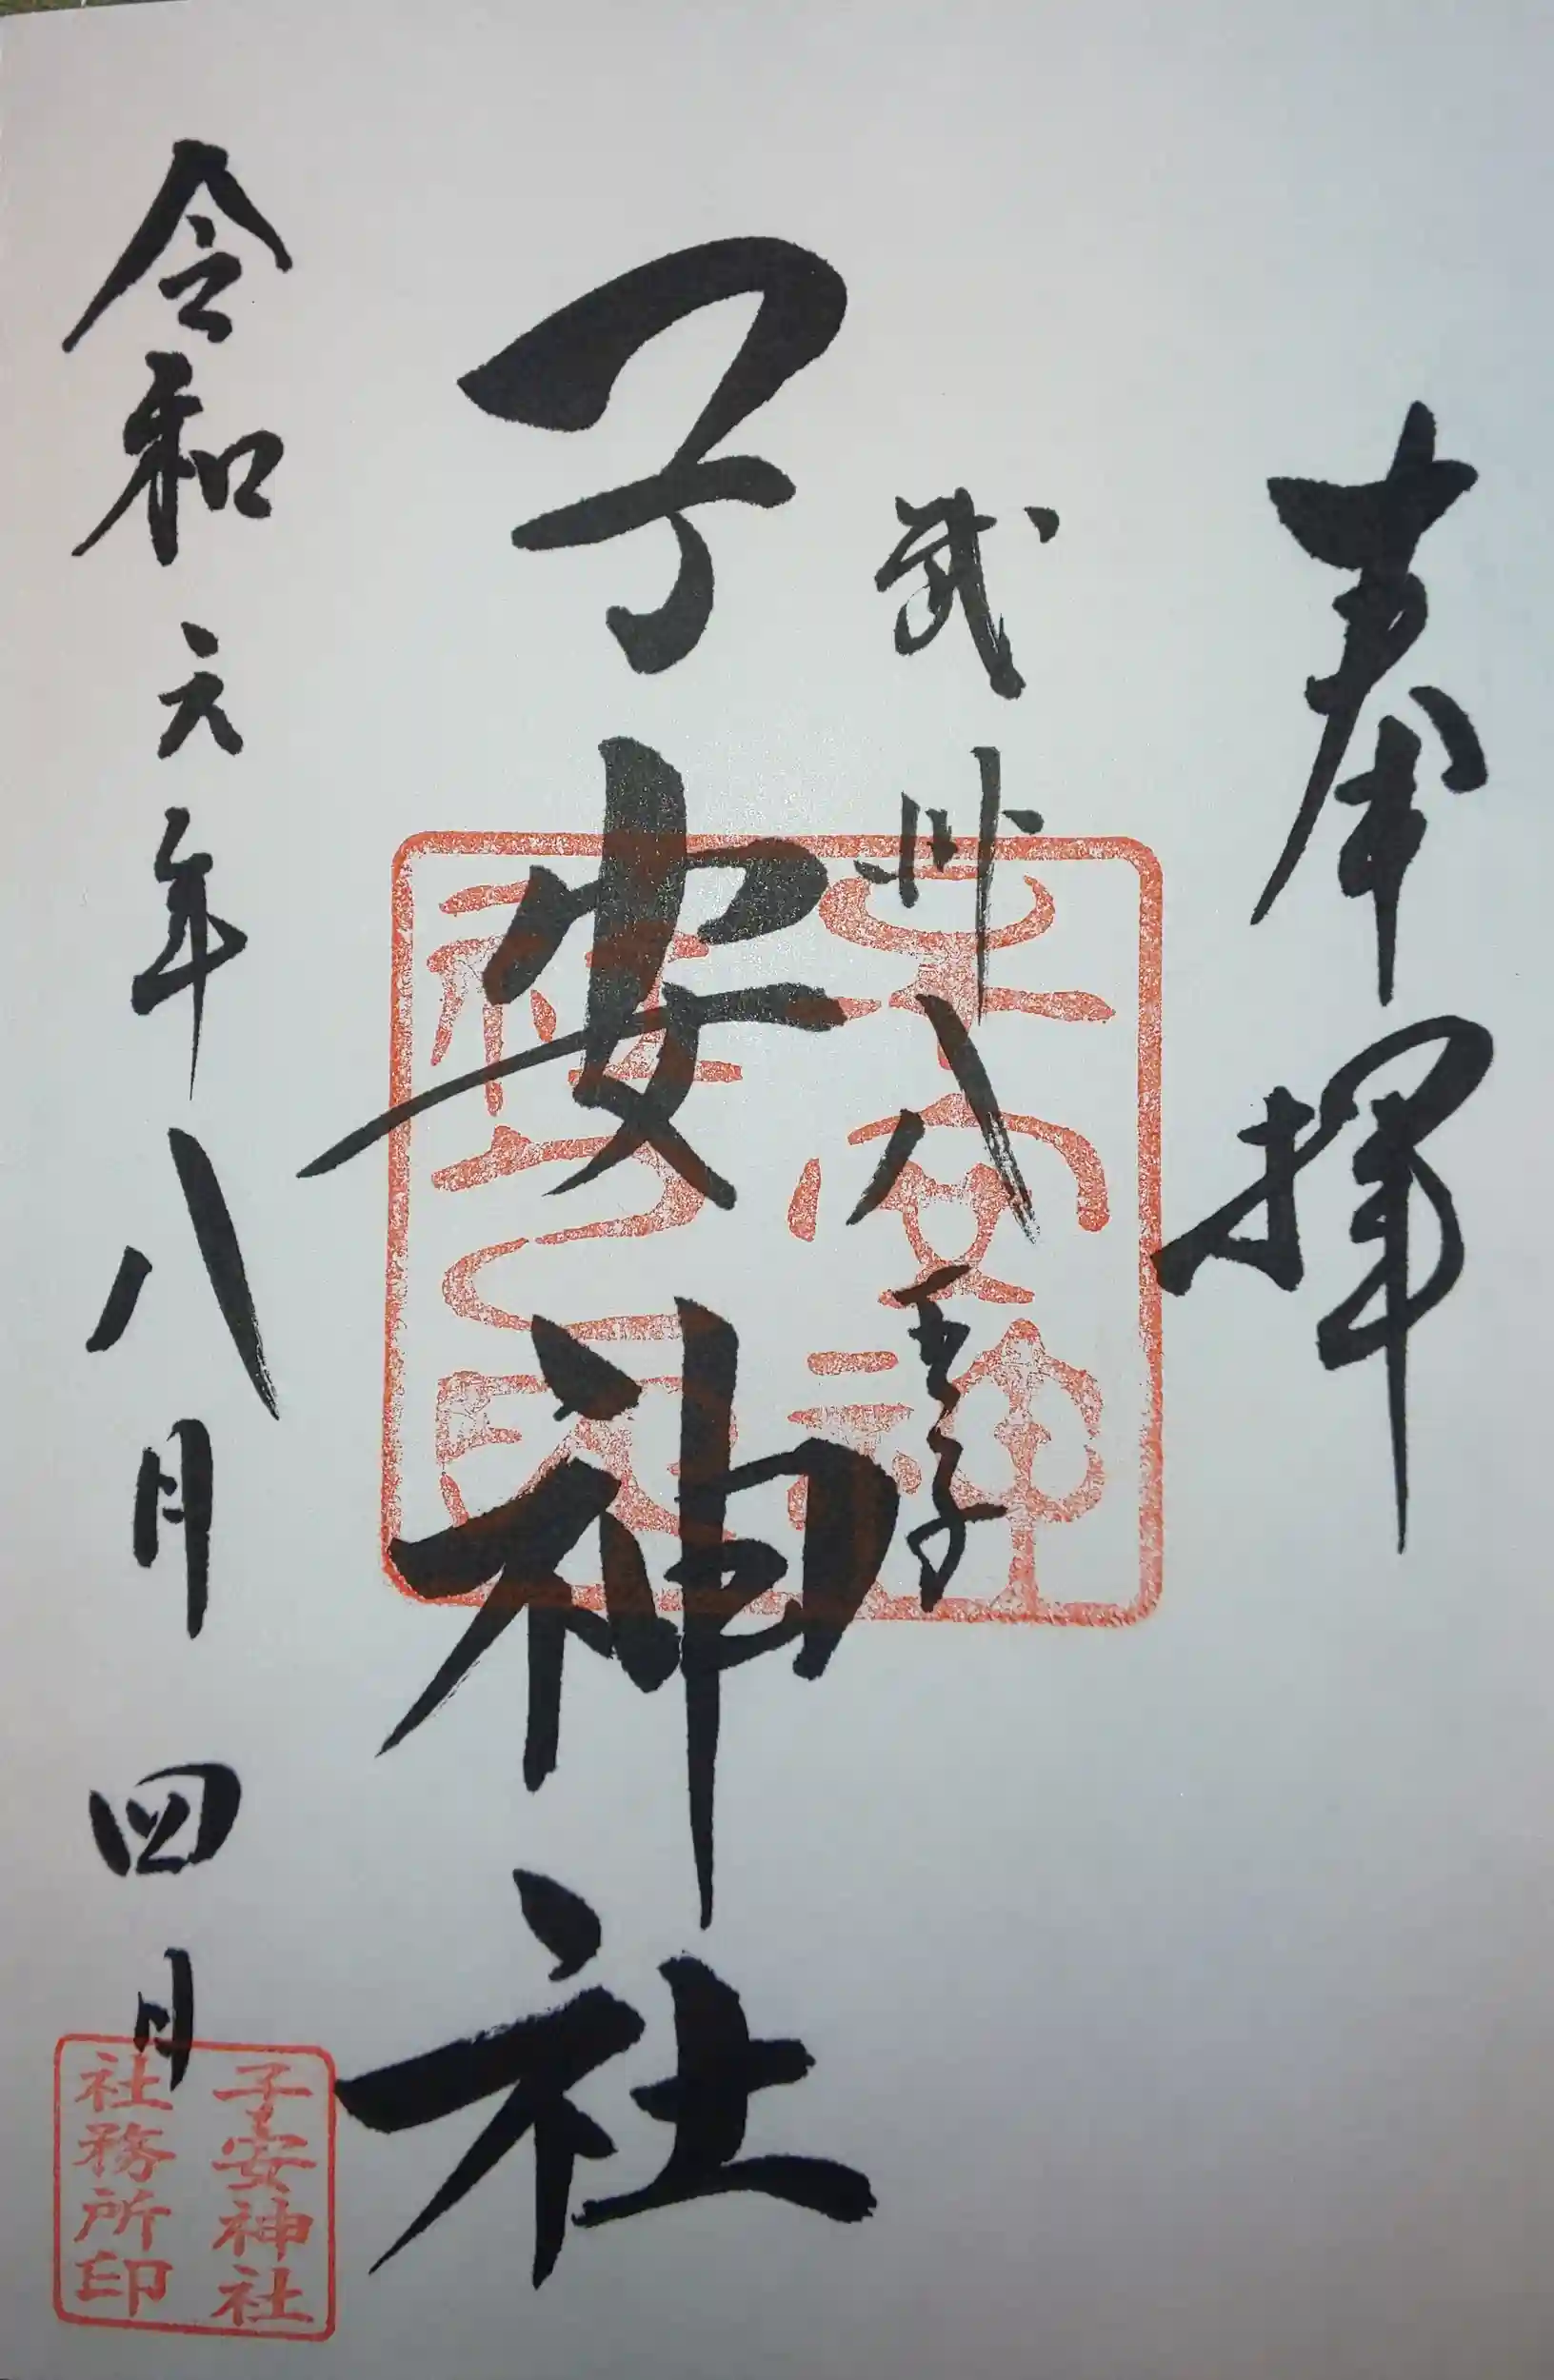 奉拝
武州八王子
子安神社
令和元年八月四日
子安神
社之印
子安神社
社務所印